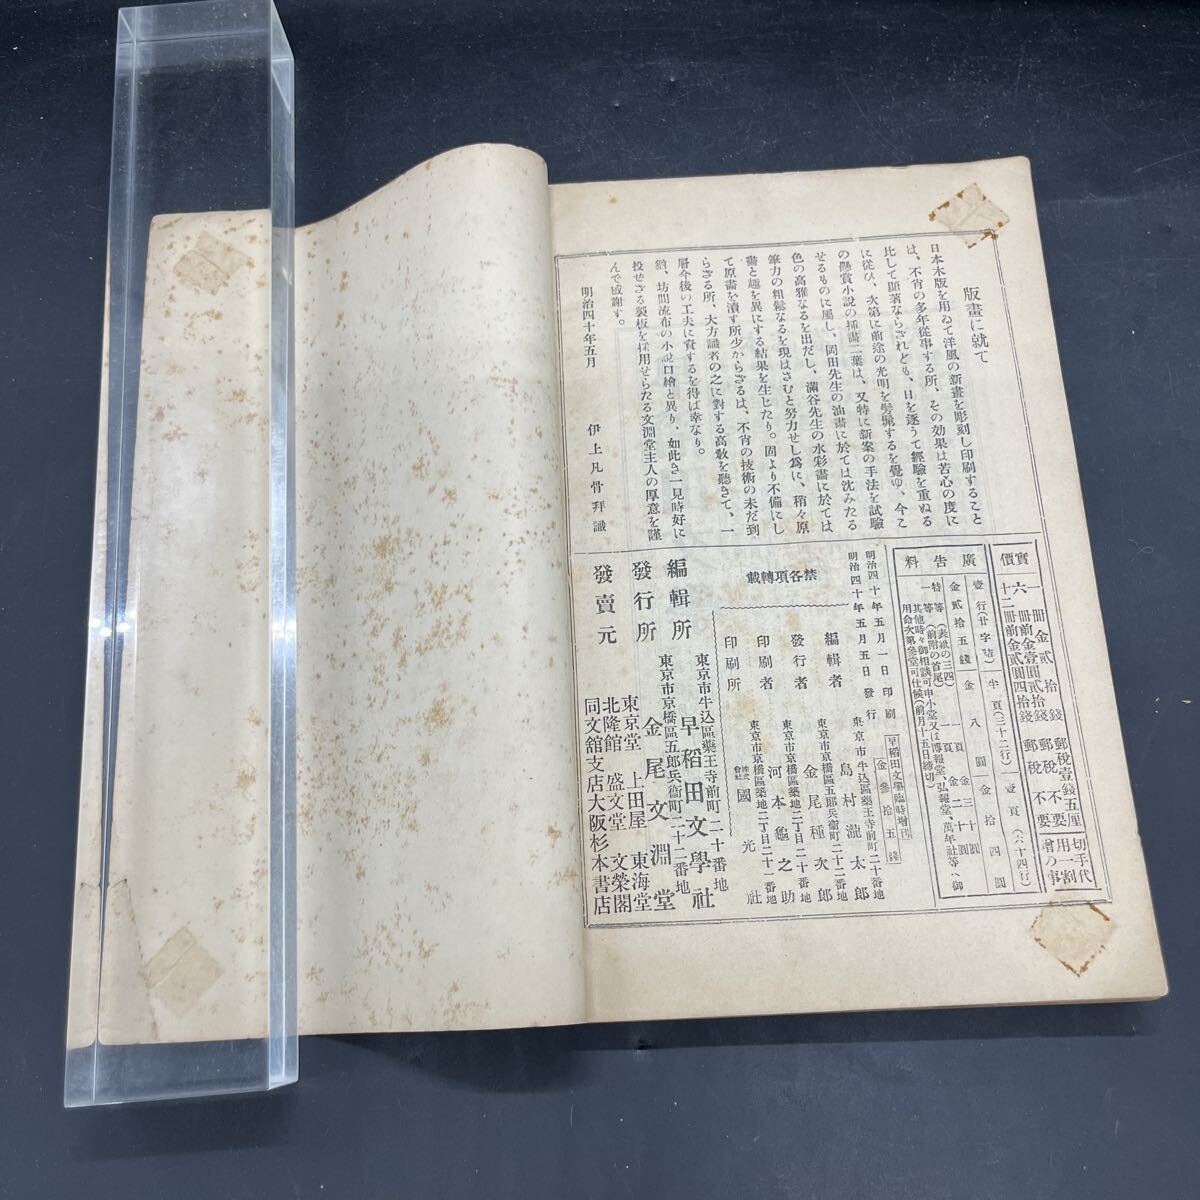 版畫に就て
日本木版を用ゐて洋風の新畫を彫刻し印刷すること
は、不肖の多年從事する所、その効果は苦心の度に
比して顯著ならざれども、日を逐うて經驗を重ぬる
に從ひ、次第に前途の光明を髣髴するを覺ゆ、今こ
の懸賞小説の揷畫二葉は、又特に新案の手法を試驗
せるものに屬し、岡田先生の油畫に於ては沈みたる
色の高雅なるを出だし、滿谷先生の水彩畫に於ては
筆力の粗鬆なるを現はさむと努力せし爲に、稍々原
畵と趣を異にする結果を生じたり。固より不備にし
て原畫を瀆す所少からざるは、不肖の技術の未だ到
らざる所、大方識者の之に對する高敎を聽きて、一
層今後の工夫に資するを得ば幸なり。
猶、坊間流布の小説口繪と異り、如此き一見時好に
投ぜざる製板を採用せらたる文淵堂主人の厚意を謹
んで感謝す。
明治四十年五月　伊上凡骨拜識
實價
一冊金貳拾錢　郵税壹錢五厘
六冊前金壹圓貳拾錢　郵税不要
十二冊前金貳圓四拾錢　郵税不要
切手代
用一割
增の事
廣告料
壹行(廿字詰)　半頁(三十二行)　壹頁(六十四行)
金貳拾五錢　金八圓　金拾四圓
特等(表紙の三四)　一頁　金三十圓
一等(前附の首尾)　一頁　金二十圓
其他時々御相談可申小堂又は博報堂、弘報堂、萬年社等へ御
用命次第參堂可仕候(前月十五日締切)
明治四十年五月一日印刷
明治四十年五月五日發行
早稻田文學臨時增刊
金參拾五錢
禁各項轉載
編輯者　東京市牛込區藥王寺前町二十番地
島村瀧太郎
發行者　東京市京橋區五郎兵衞町二十二番地
金尾種次郎
印刷者　東京市京橋區築地二丁目二十番地
河本龜之助
印刷所　東京市京橋區築地二丁目二十一番地
株式會社　國光社
編輯所　東京市牛込區藥王寺前町二十番地
早稻田文學社
發行所　東京市京橋區五郎兵衞町二十二番地
金尾文淵堂
發賣元
東京堂　上田屋　東海堂
北隆館　盛文堂　文榮閣
同文舘支店　大阪杉本書店